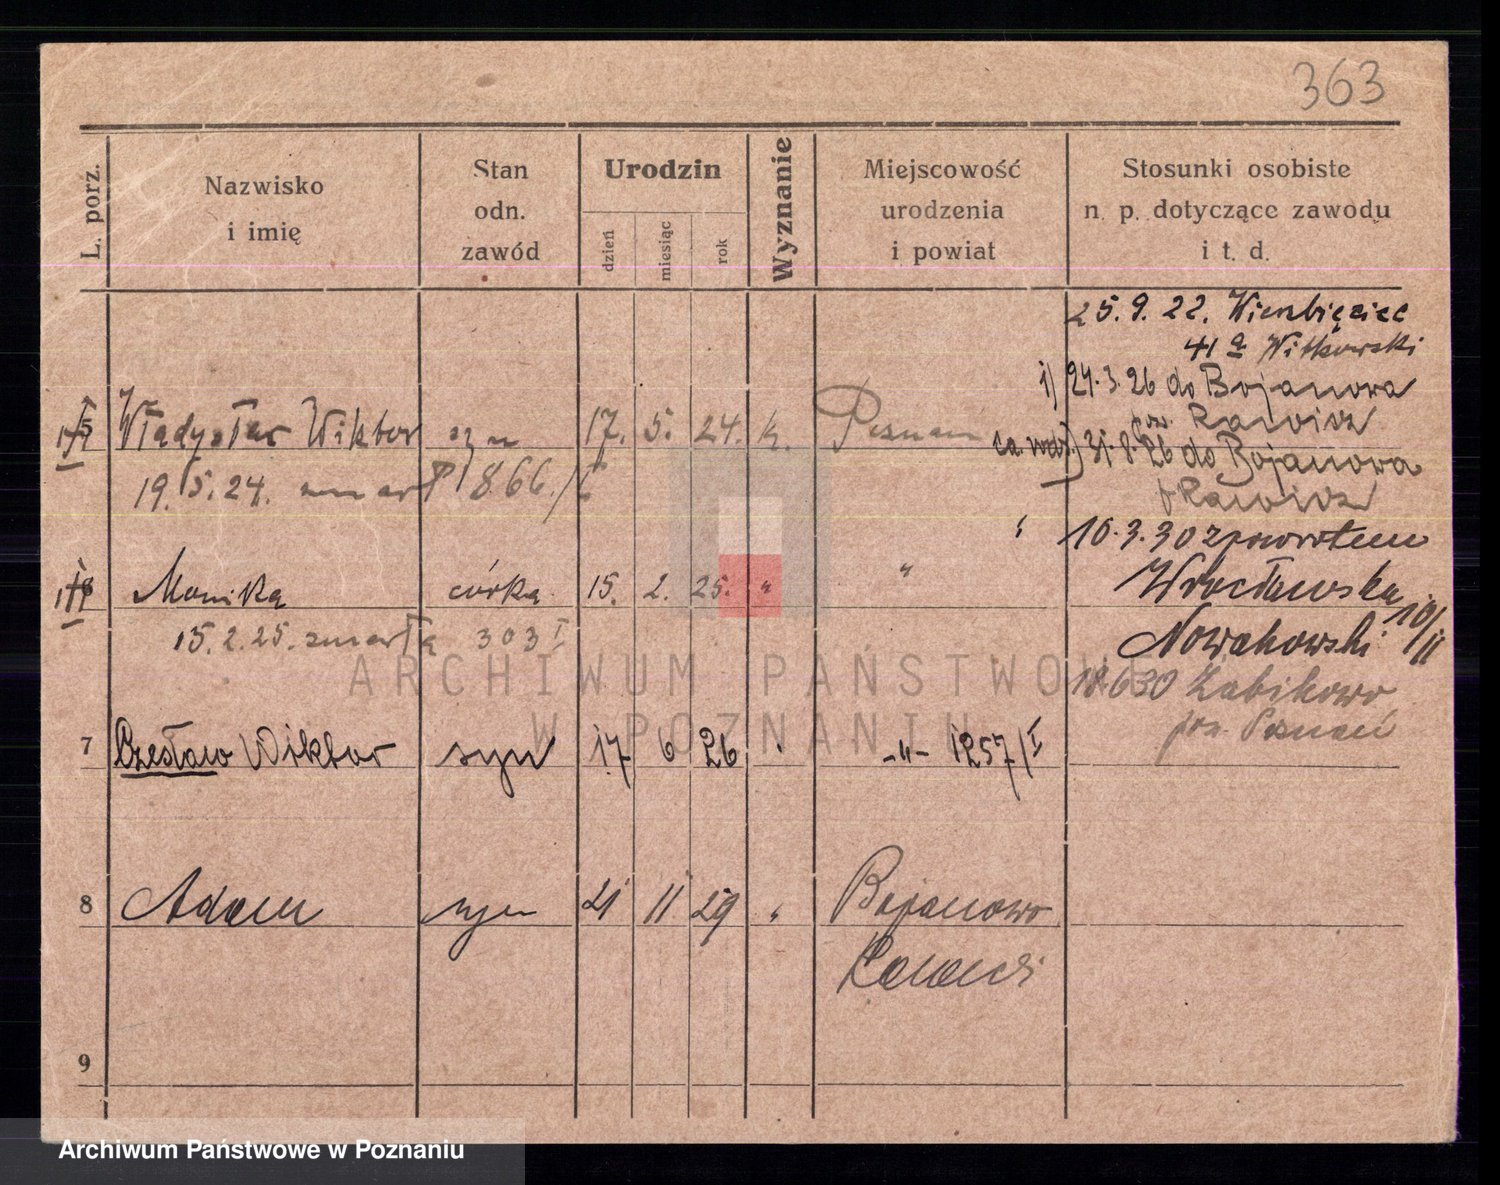 363
L. porz.
Nazwisko
i imię
Stan
odn.
zawód
Urodzin
dzień
miesiąc
rok
Wyznanie
Miejscowość
urodzenia
i powiat
Stosunki osobiste
n. p. dotyczące zawodu
i t. d.
25. 9. 22. Wierzbięcice
41 a Witkowski
1) 24. 3. 26 do Bojanowa
Rawicz
5 Władysław Wiktor syn 17. 5. 24. k. Poznań
31. 8. 26 do Bojanowa
19. 5. 24. zmarł 866./I
Rawicz
10. 3. 30 zpowrotem
Monika córka 15. 2. 25. " "
Wrocławska 10/11
15. 2. 25. zmarła 303 I
Nowakowski
ARCHIWUM PAŃSTWOWE
W POZNANIU
18.6.30 Żabikowo
poz. Poznań
7 Czesław Wiktor syn 17 6 26 -"- 1257/I
8 Adam syn 21 11 29 " Bojanowo
Rawicz
9
Archiwum Państwowe w Poznaniu